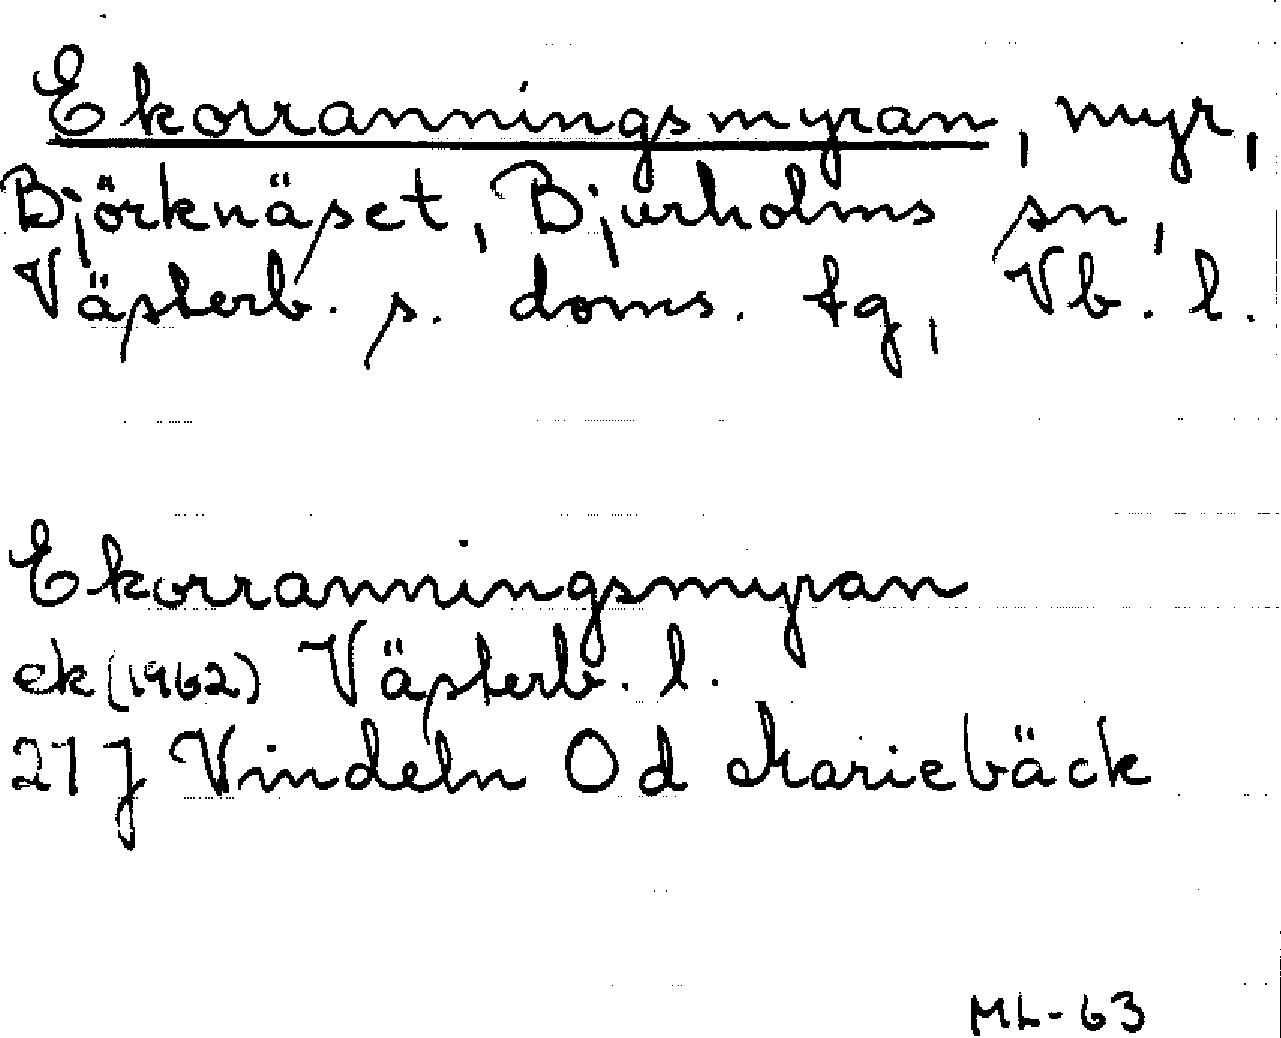 Ekorranningsmyran, myr,
Björknäset, Bjurholms sn,
Västerb. s. doms. tg, Vb. l.
Ekorranningsmyran
ek (1962) Västerb. l.
21 J Vindeln 0 d Mariebäck
ML-63